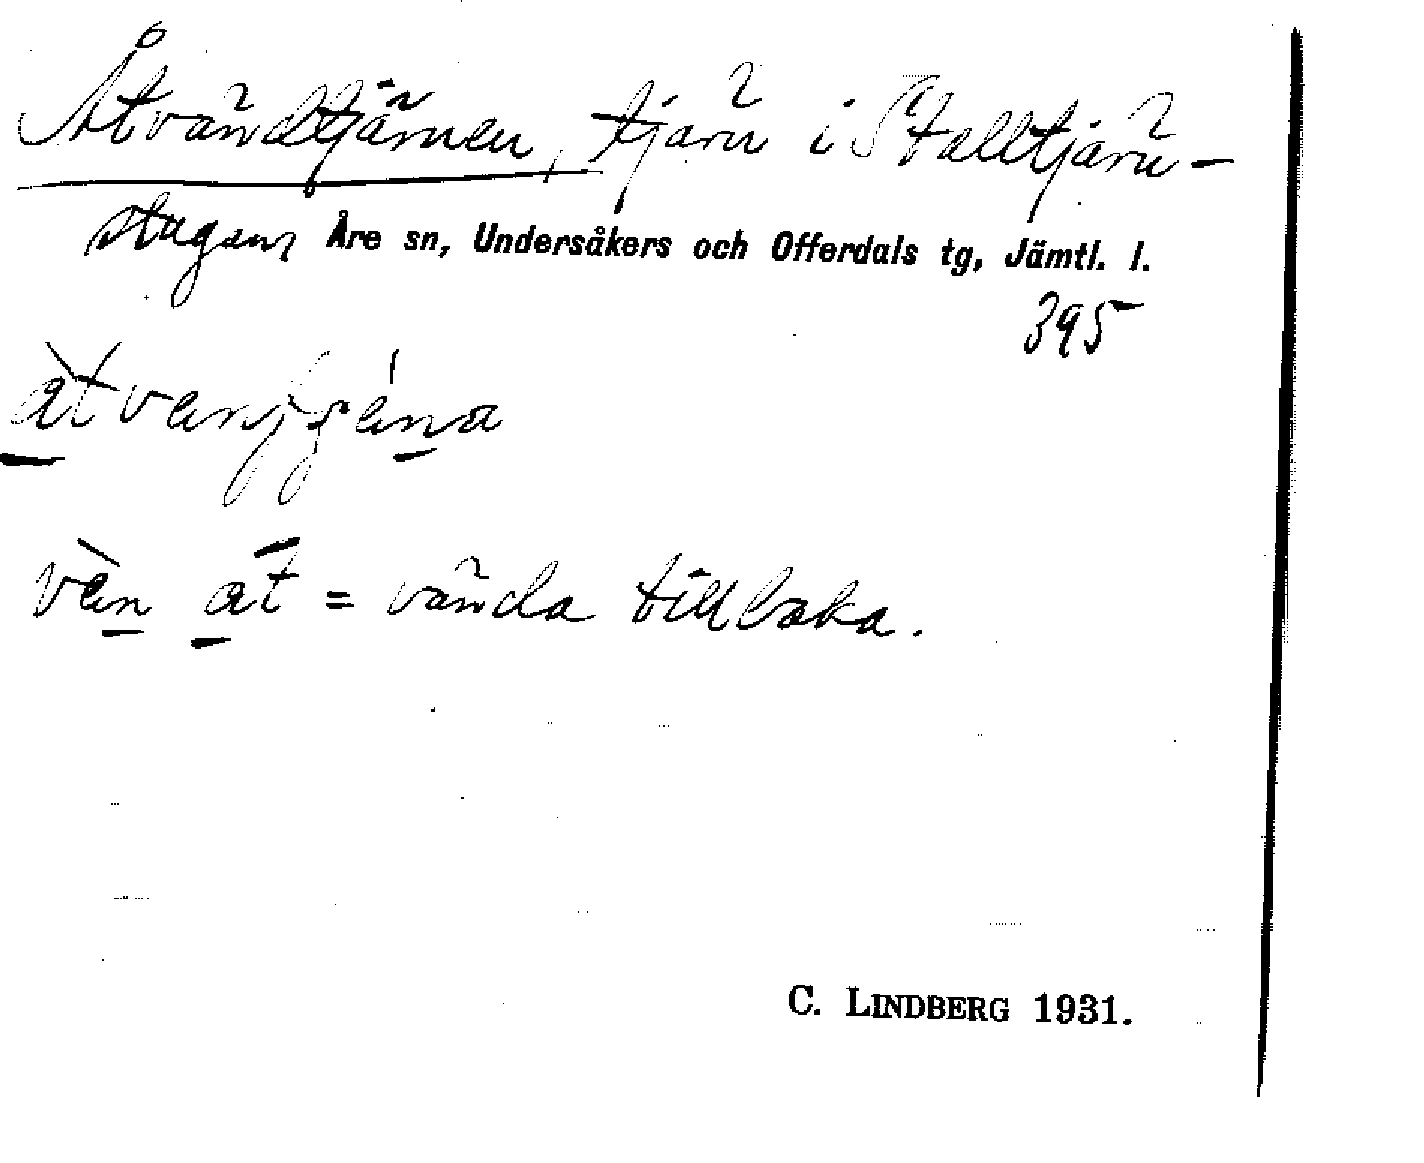 Åtvändtjärnen, tjärn i Stalltjärn-
stugans Åre sn, Undersåkers och Offerdals tg, Jämtl. l.
395
vèn at = vända tillbaka.
C. LINDBERG 1931.